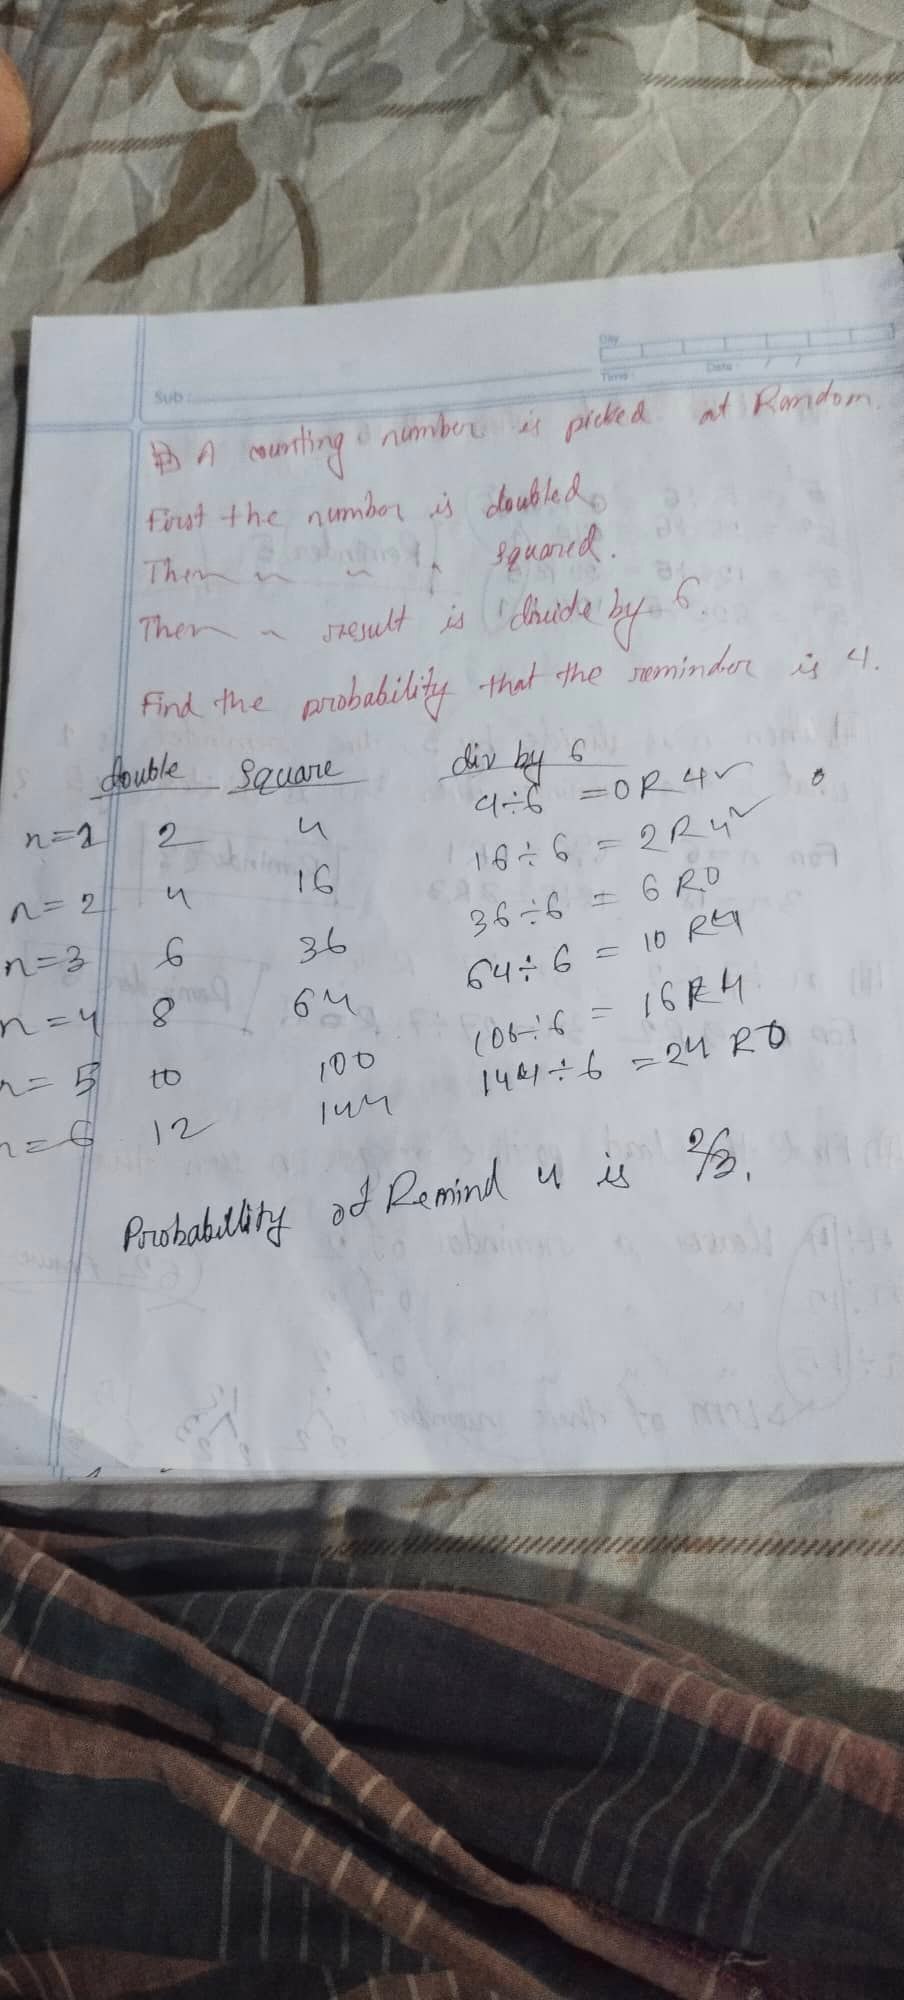 Day
Time: Date: / /
Sub:
A counting number is picked at Random.
First the number is doubled,
Then " " " squared.
Then " result is divide by 6.
Find the probability that the reminder is 4.
double square div by 6
n=1 2 4 4÷6 =0R4✓
n=2 4 16 16÷6 = 2R4✓
n=3 6 36 36÷6 = 6 R0
n=4 8 64 64÷6 = 10 R4
n=5 10 100 100÷6 = 16R4
n=6 12 144 144÷6 =24 R0
Probabillity of Remind 4 is 2/3.